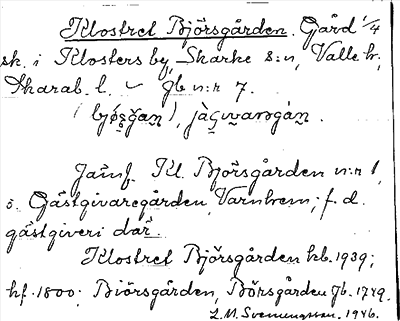 Klostret Björsgården. Gård 1/4
sk. i Klosters by, Skarke s:n, Valle hr,
Skarab. l. Jb n:r 7.
Jämf. Kl. Björsgården n:r 1,
o. Gästgivaregården, Varnhem; f. d.
gästgiveri där.
Klostret Björsgården kb. 1939;
hf. 1800: Biörsgården, Börsgården Jb. 1749.
L.M. Svenungsson. 1946.